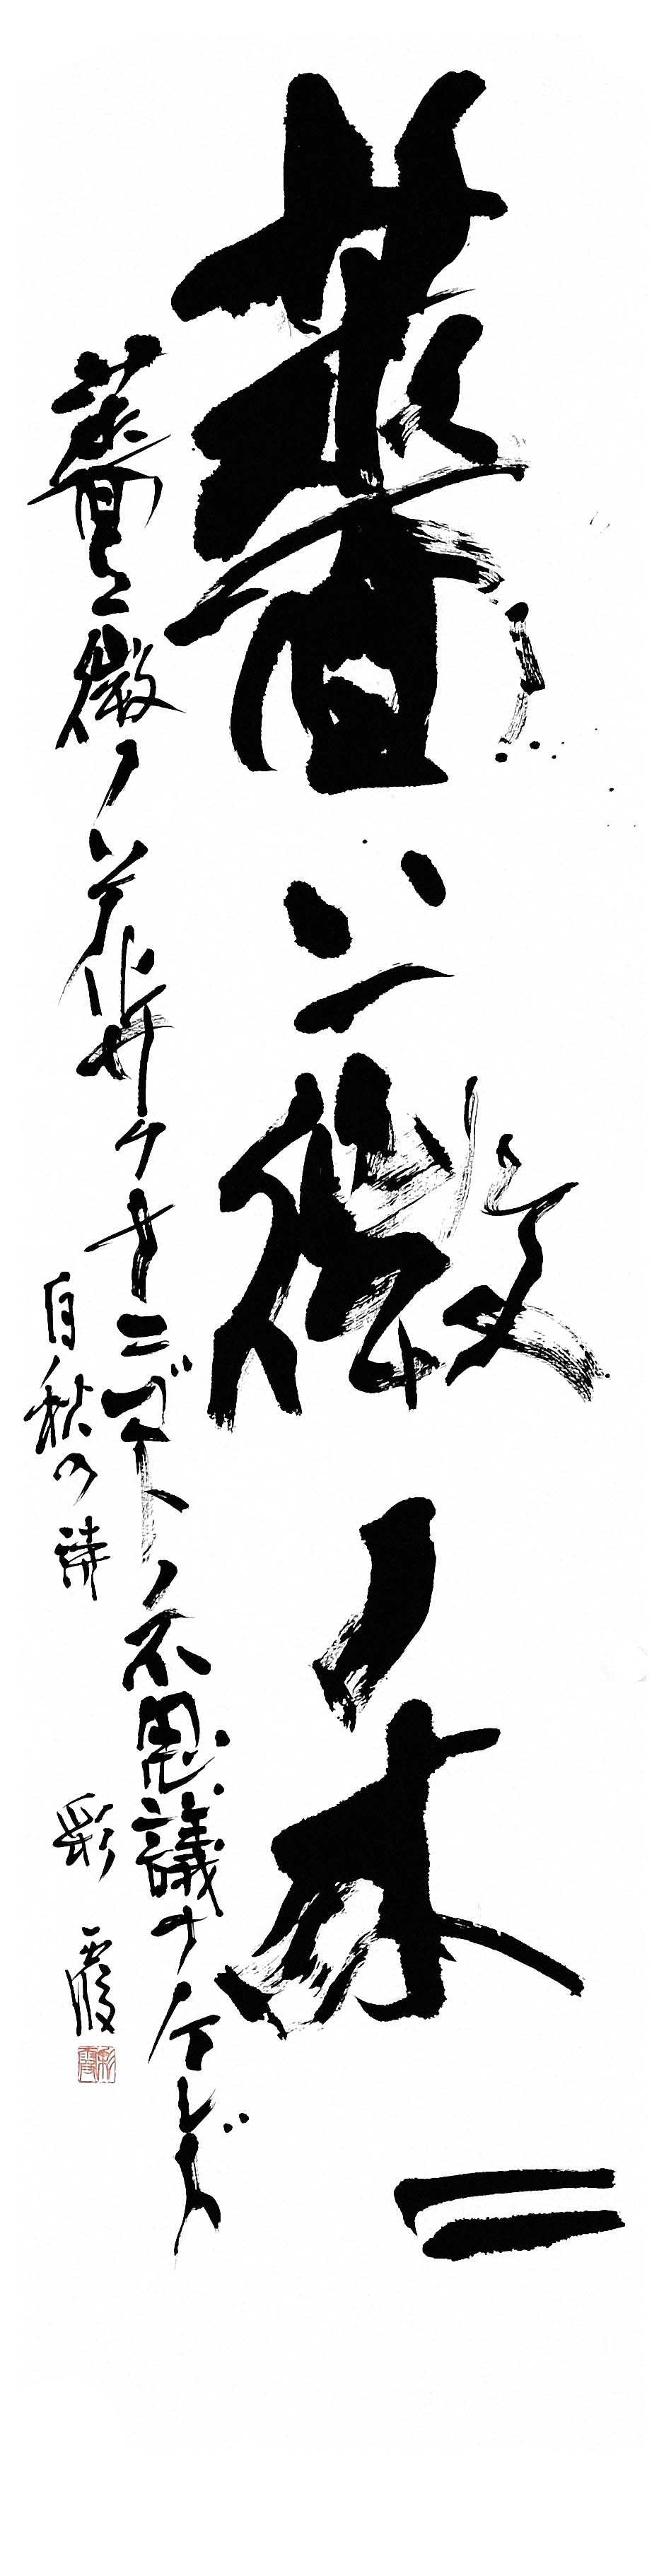 薔薇ノ木ニ
薔薇ノ花サクナニゴトノ不思議ナケレド
白秋の詩
彩霞